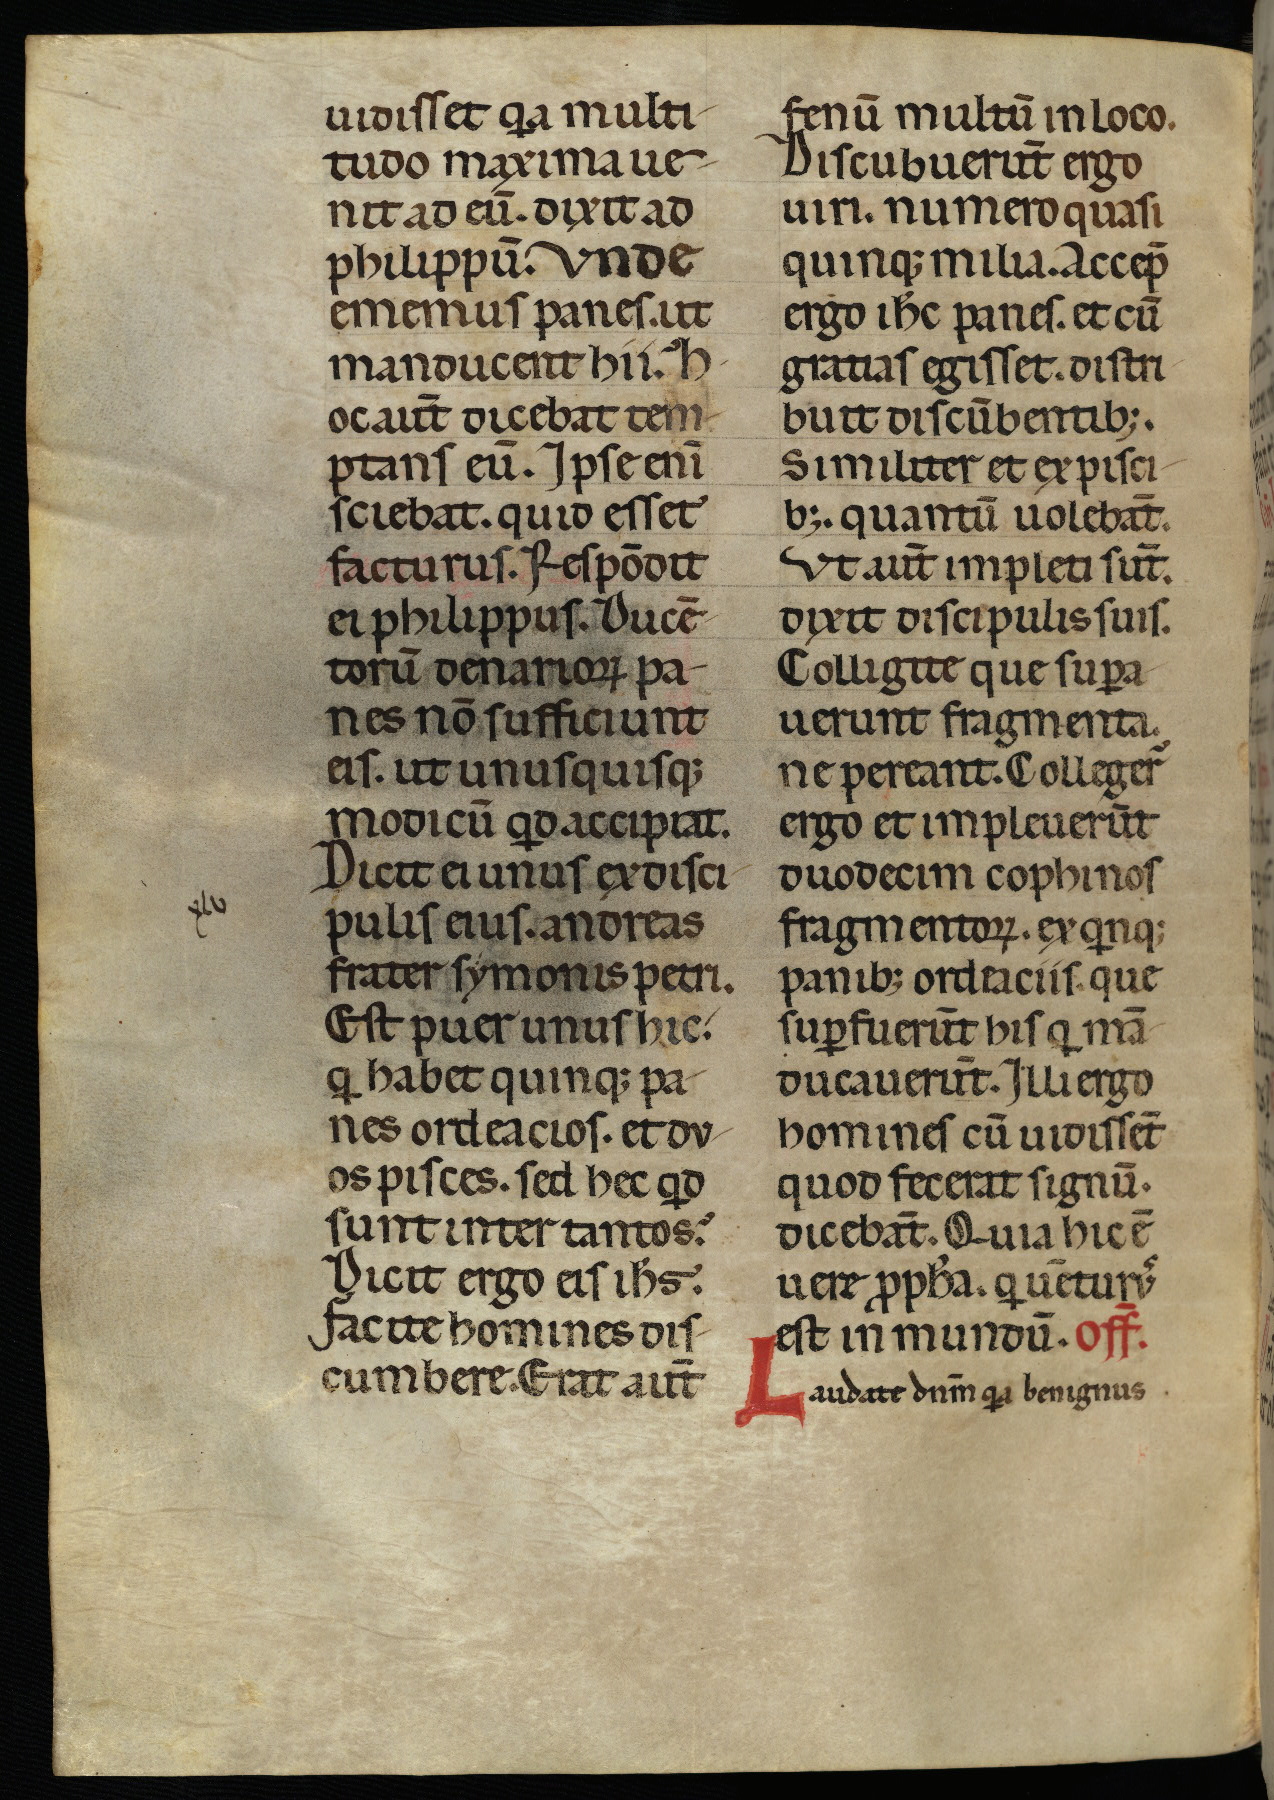 uidisset qa multi-
tudo maxima ue-
nit ad eū. dixit ad
philippū. Vnde
ememus panes. ut
manducent hii. h-
oc aut̄ dicebat tem-
ptans eū. Ipse eni̅
sciebat. quid esset
facturus. Respōdit
ei philippus. Ducē-
torū denarioꝝ pa-
nes nō sufficiunt
eis. ut unusquisqꝫ
modicū qd accipiat.
Dicit ei unus ex disci-
pulis eius. andreas
frater symonis petri.
Est puer unus hic.
q habet quinqꝫ pa-
nes ordeacios. et du-
os pisces. sed hec qd
sunt inter tantos.
Dicit ergo eis ihs̄.
facite homines dis-
cumbere. Erat aut̄
fenū multū in loco.
Discubuerūt ergo
uiri. numero quasi
quinqꝫ milia. Accep̄
ergo ihc̄ panes. et cū
gratias egisset. distri-
buit discūbentibꝫ.
Similiter et ex pisci-
bꝫ. quantū uolebat̄.
Vt aut̄ impleti sūt.
dixit discipulis suis.
Colligite que suꝑa-
uerunt fragmenta.
ne pereant. Colleger̄
ergo et impleuerūt
duodecim cophinos
fragmentoꝝ. ex qnqꝫ
panibꝫ ordeaciis. que
suꝑfuerūt his q mā-
ducauerūt. Illi ergo
homines cū uidissēt
quod fecerat signū.
dicebāt. Quia hic ē
uere ꝓpha. q uēturꝰ
est in mundū. Off̄.
Laudate dn̄m qa benignus